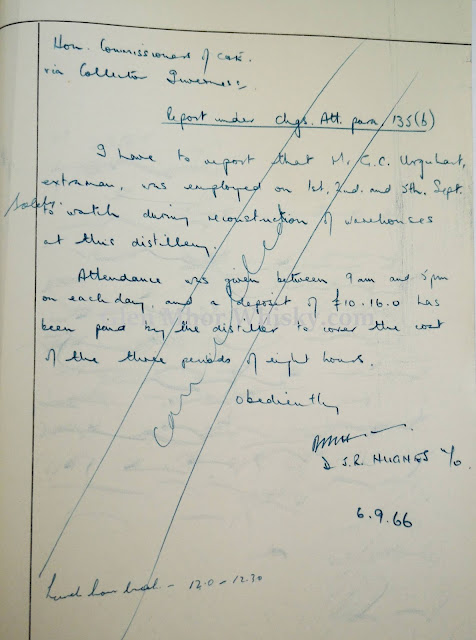 Hon. Commissioners of C & E.
via Collector Inverness.
Report under Chgs. Att. para 135(b)
I have to report that Mr. G.C. Urquhart,
extraman, was employed on 1st, 2nd. and 5th. Sept.
solely
to watch during reconstruction of warehouses
at this distillery.
Attendance was given between 9am and 5pm
on each day, and a deposit of £10.16.0 has
been paid by the distiller to cover the cost
of the three periods of eight hours.
Cancelled
Obediently
D J.R. HUGHES
6.9.66
Lunch hour - 12.0 - 12.30
Whisky.com